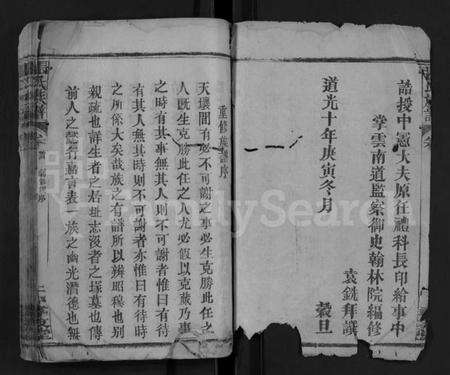 誥授中憲大夫原任禮科長印給事中
掌雲南道監察御史翰林院編修
袁銑拜譔
道光十年庚寅冬月
穀旦
重修族譜序
天壤間有必不可謝之事必生克勝此任之
人旣生克勝此任之人尤必假以克蕆乃事
之時有其事無其人則不可謝者亦惟曰有待
有其人無其時則不可謝者亦惟曰有待時
之所係大矣哉族之有譜所以辨昭穆也别
親疏也詳生者之里址志沒者之塚墓也傳
前人之行嘉言表一族之幽光潛德也無
FamilySearch